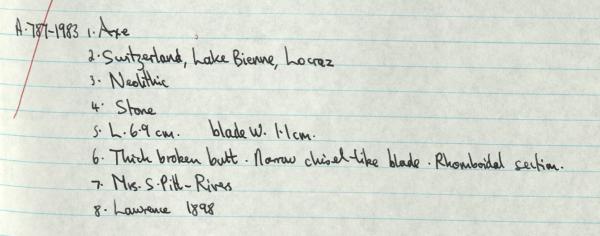 A.787-1983 1. Axe
2. Switzerland, Lake Bienne, Locraz
3. Neolithic
4. Stone
5. L. 6.9 cm. blade W. 1.1 cm.
6. Thick broken butt. Narrow chisel-like blade. Rhomboidal section.
7. Mrs. S. Pitt-Rivers
8. Lawrence 1898